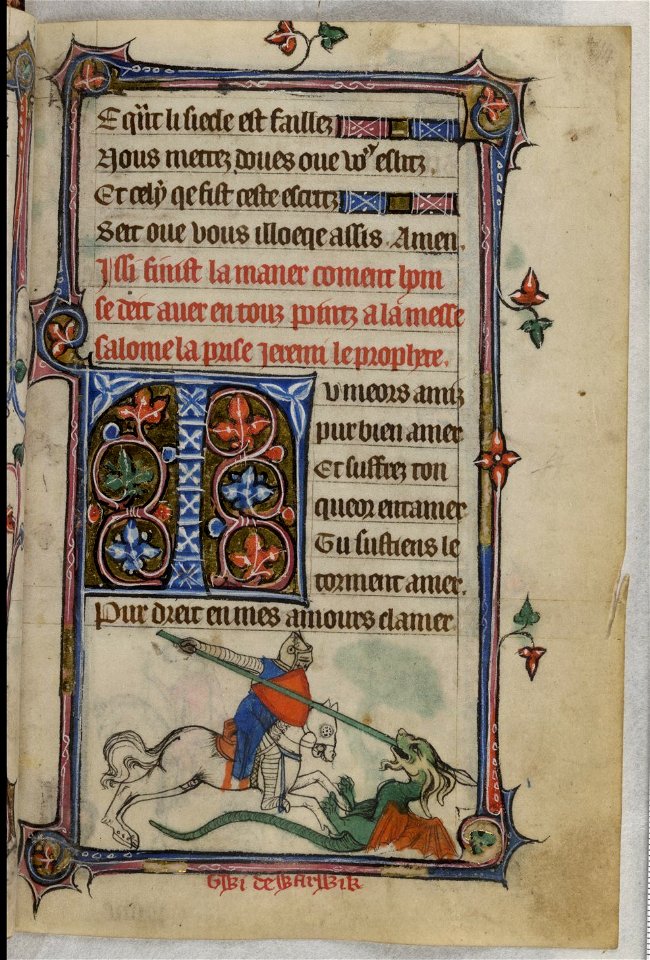 E qͥnt li siecle est faillez
Nous mettez doues oue voꝰ eslitz.
Et cely qe fist ceste escritz
Seit oue vous illoeqe assis. Amen.
Issi finist la maner coment hom
se deit auer en touz pointz a la messe
salome la prise Jeremi le prophete.
Tu meors amis
pur bien amer
Et suffrez ton
queor entamer
Tu sustiens le
torment amer.
Pur dreit en mes amours clamer
Gwi de Warwik